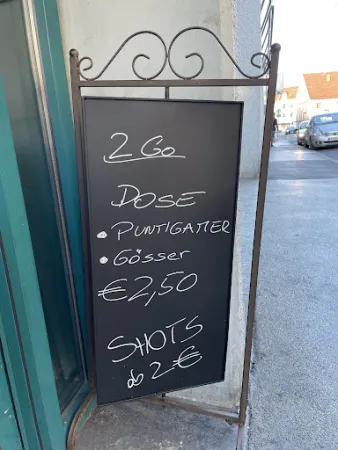 2 Go
DOSE
• PUNTIGAMER
• Gösser
€2,50
SHOTS
ab 2 €